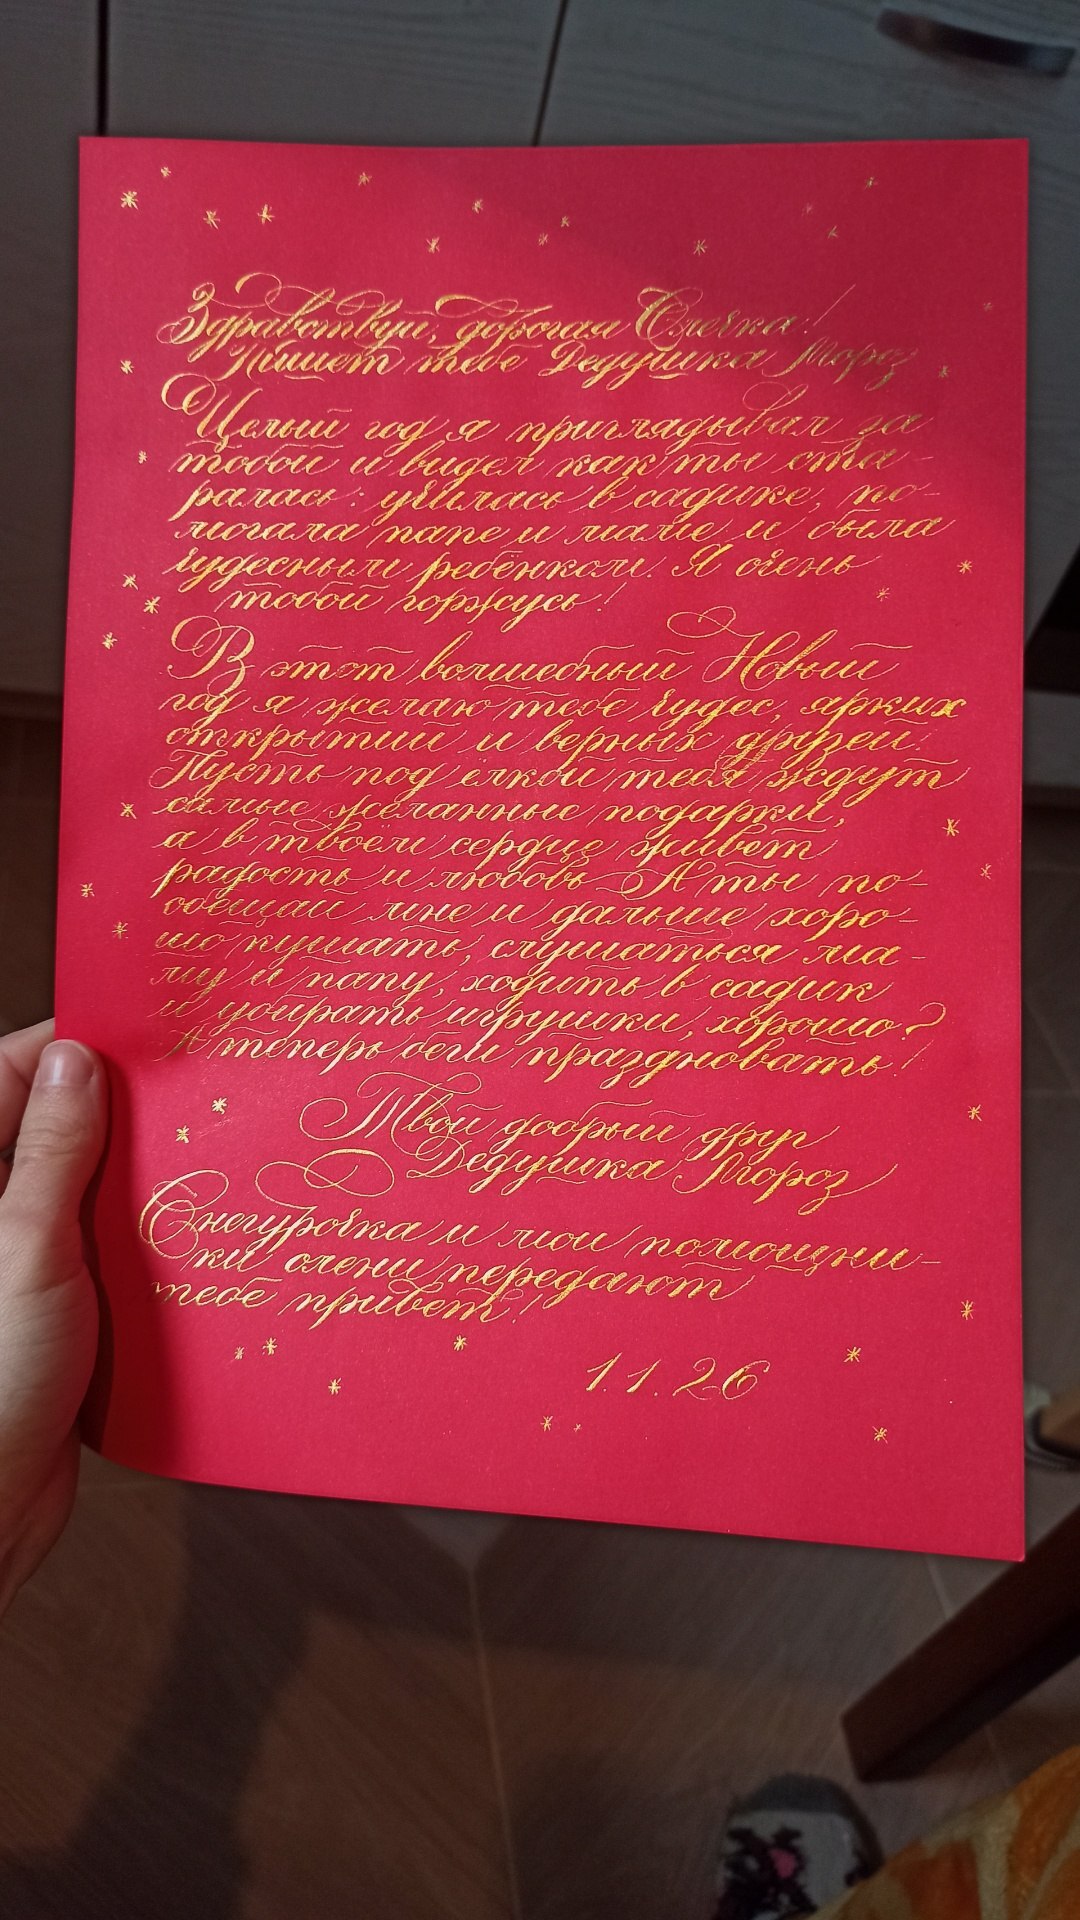 Здравствуй, дорогая !
Пишет тебе Дедушка Мороз
Целый год я приглядывал за
тобой и видел как ты ста-
ралась: училась в садике, по-
могала папе и маме и была
чудесным ребёнком. Я очень
тобой горжусь!
В этот волшебный Новый
год я желаю тебе чудес, ярких
открытий и верных друзей!
Пусть под ёлкой тебя ждут
самые желанные подарки,
а в твоём сердце живёт
радость и любовь. А ты по-
обещай мне и дальше хоро-
шо кушать, слушаться ма-
му и папу, ходить в садик
и убирать игрушки, хорошо?
А теперь беги праздновать!
Твой добрый друг
Дедушка Мороз
Снегурочка и мои помощни-
ки олени передают
тебе привет!
1.1.26